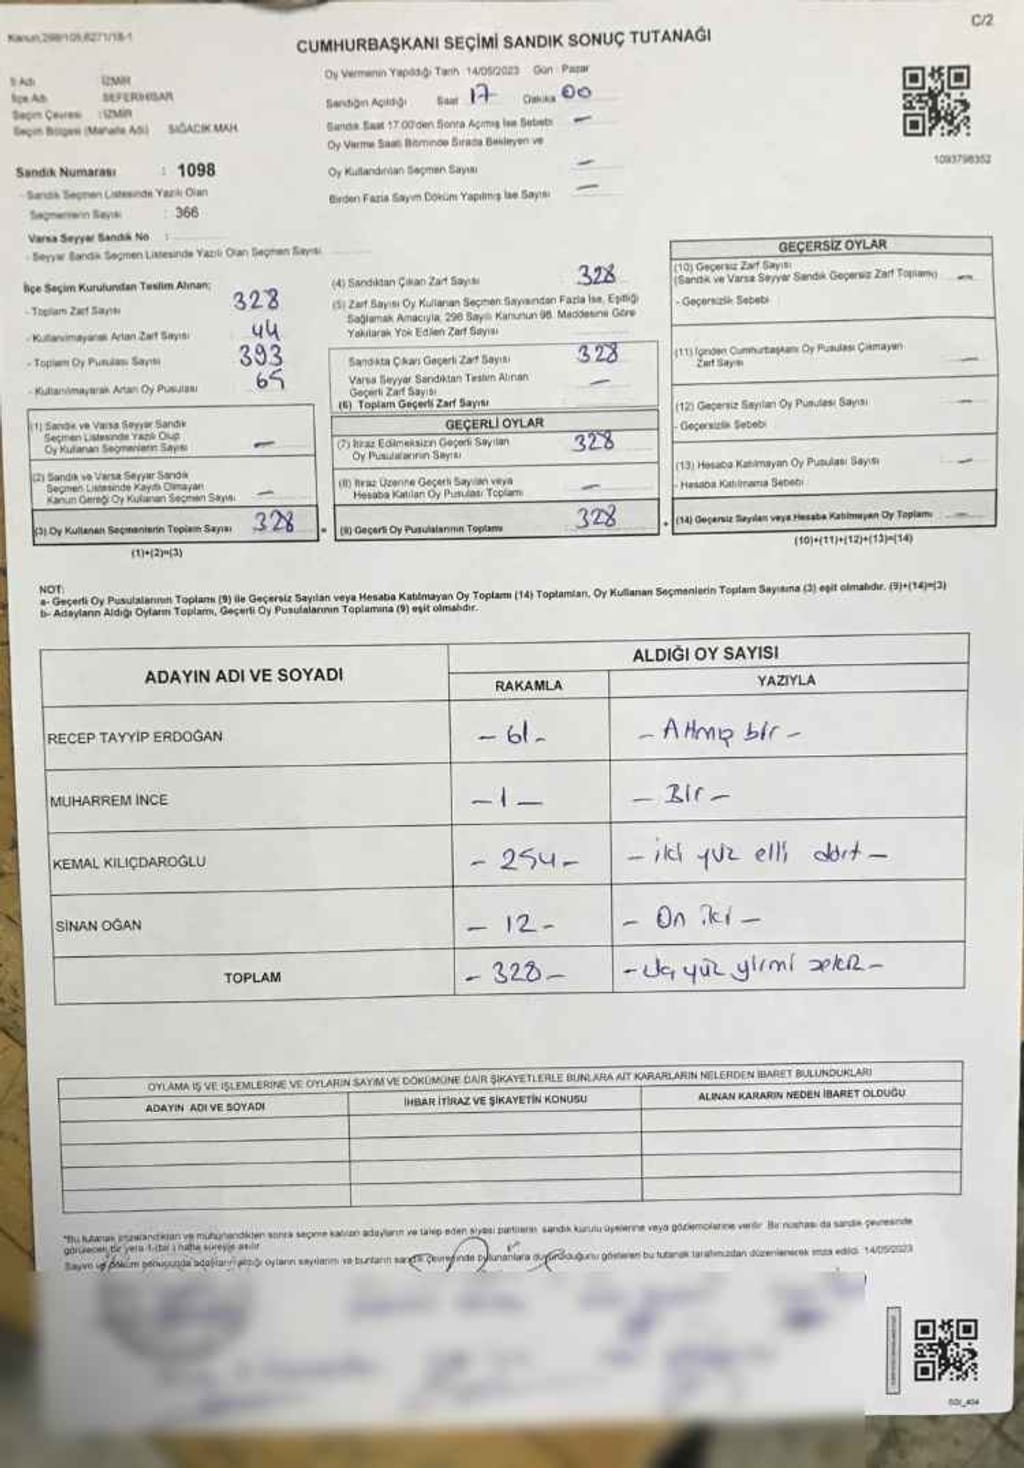 C/2
Kanun,298/105,6271/18-1
CUMHURBAŞKANI SEÇİMİ SANDIK SONUÇ TUTANAĞI
İl Adı İZMİR
İlçe Adı SEFERİHİSAR
Seçim Çevresi : İZMİR
Seçim Bölgesi (Mahalle Adı) SIĞACIK MAH.
Sandık Numarası : 1098
- Sandık Seçmen Listesinde Yazılı Olan
Seçmenlerin Sayısı : 366
Varsa Seyyar Sandık No :
- Seyyar Sandık Seçmen Listesinde Yazılı Olan Seçmen Sayısı
Oy Vermenin Yapıldığı Tarih 14/05/2023 Gün : Pazar
Sandığın Açıldığı Saat 17 Dakika 00
Sandık Saat 17.00'den Sonra Açılmış İse Sebebi —
Oy Verme Saati Bitiminde Sırada Bekleyen ve
Oy Kullandırılan Seçmen Sayısı —
Birden Fazla Sayım Döküm Yapılmış İse Sayısı —
1093798352
İlçe Seçim Kurulundan Teslim Alınan;
- Toplam Zarf Sayısı 328
- Kullanılmayarak Artan Zarf Sayısı 44
- Toplam Oy Pusulası Sayısı 393
- Kullanılmayarak Artan Oy Pusulası 65
(1) Sandık ve Varsa Seyyar Sandık
Seçmen Listesinde Yazılı Olup
Oy Kullanan Seçmenlerin Sayısı —
(2) Sandık ve Varsa Seyyar Sandık
Seçmen Listesinde Kayıtlı Olmayan
Kanun Gereği Oy Kullanan Seçmen Sayısı —
(3) Oy Kullanan Seçmenlerin Toplam Sayısı 328
(1)+(2)=(3)
(4) Sandıktan Çıkan Zarf Sayısı 328
(5) Zarf Sayısı Oy Kullanan Seçmen Sayısından Fazla İse, Eşitliği
Sağlamak Amacıyla, 298 Sayılı Kanunun 98. Maddesine Göre
Yakılarak Yok Edilen Zarf Sayısı
Sandıkta Çıkan Geçerli Zarf Sayısı 328
Varsa Seyyar Sandıktan Teslim Alınan
Geçerli Zarf Sayısı —
(6) Toplam Geçerli Zarf Sayısı
GEÇERLİ OYLAR
(7) İtiraz Edilmeksizin Geçerli Sayılan
Oy Pusulalarının Sayısı 328
(8) İtiraz Üzerine Geçerli Sayılan veya
Hesaba Katılan Oy Pusulası Toplamı —
= (9) Geçerli Oy Pusulalarının Toplamı 328
GEÇERSİZ OYLAR
(10) Geçersiz Zarf Sayısı
(Sandık ve Varsa Seyyar Sandık Geçersiz Zarf Toplamı) —
- Geçersizlik Sebebi
(11) İçinden Cumhurbaşkanı Oy Pusulası Çıkmayan
Zarf Sayısı —
(12) Geçersiz Sayılan Oy Pusulası Sayısı —
- Geçersizlik Sebebi
(13) Hesaba Katılmayan Oy Pusulası Sayısı —
- Hesaba Katılmama Sebebi
+ (14) Geçersiz Sayılan veya Hesaba Katılmayan Oy Toplamı —
(10)+(11)+(12)+(13)=(14)
NOT:
a- Geçerli Oy Pusulalarının Toplamı (9) ile Geçersiz Sayılan veya Hesaba Katılmayan Oy Toplamı (14) Toplamları, Oy Kullanan Seçmenlerin Toplam Sayısına (3) eşit olmalıdır. (9)+(14)=(3)
b- Adayların Aldığı Oyların Toplamı, Geçerli Oy Pusulalarının Toplamına (9) eşit olmalıdır.
ADAYIN ADI VE SOYADI ALDIĞI OY SAYISI
RAKAMLA YAZIYLA
RECEP TAYYİP ERDOĞAN - 61 - - Atmış bir -
MUHARREM İNCE - 1 - - Bir -
KEMAL KILIÇDAROĞLU - 254 - - iki yüz elli dört -
SİNAN OĞAN - 12 - - On iki -
TOPLAM - 328 - - Üç yüz yirmi sekiz -
OYLAMA İŞ VE İŞLEMLERİNE VE OYLARIN SAYIM VE DÖKÜMÜNE DAİR ŞİKAYETLERLE BUNLARA AİT KARARLARIN NELERDEN İBARET BULUNDUKLARI
ADAYIN ADI VE SOYADI İHBAR İTİRAZ VE ŞİKAYETİN KONUSU ALINAN KARARIN NEDEN İBARET OLDUĞU
"Bu tutanak imzalandıktan ve mühürlendikten sonra seçime katılan adayların ve talep eden siyasi partilerin sandık kurulu üyelerine veya gözlemcilerine verilir. Bir nüshası da sandık çevresinde
görülecek bir yere 1 (bir) hafta süreyle asılır.
Sayım ve döküm sonucunda adayların aldığı oyların sayılarını ve bunların sandık çevresinde bulunanlara duyurulduğunu gösteren bu tutanak tarafımızdan düzenlenerek imza edildi. 14/05/2023